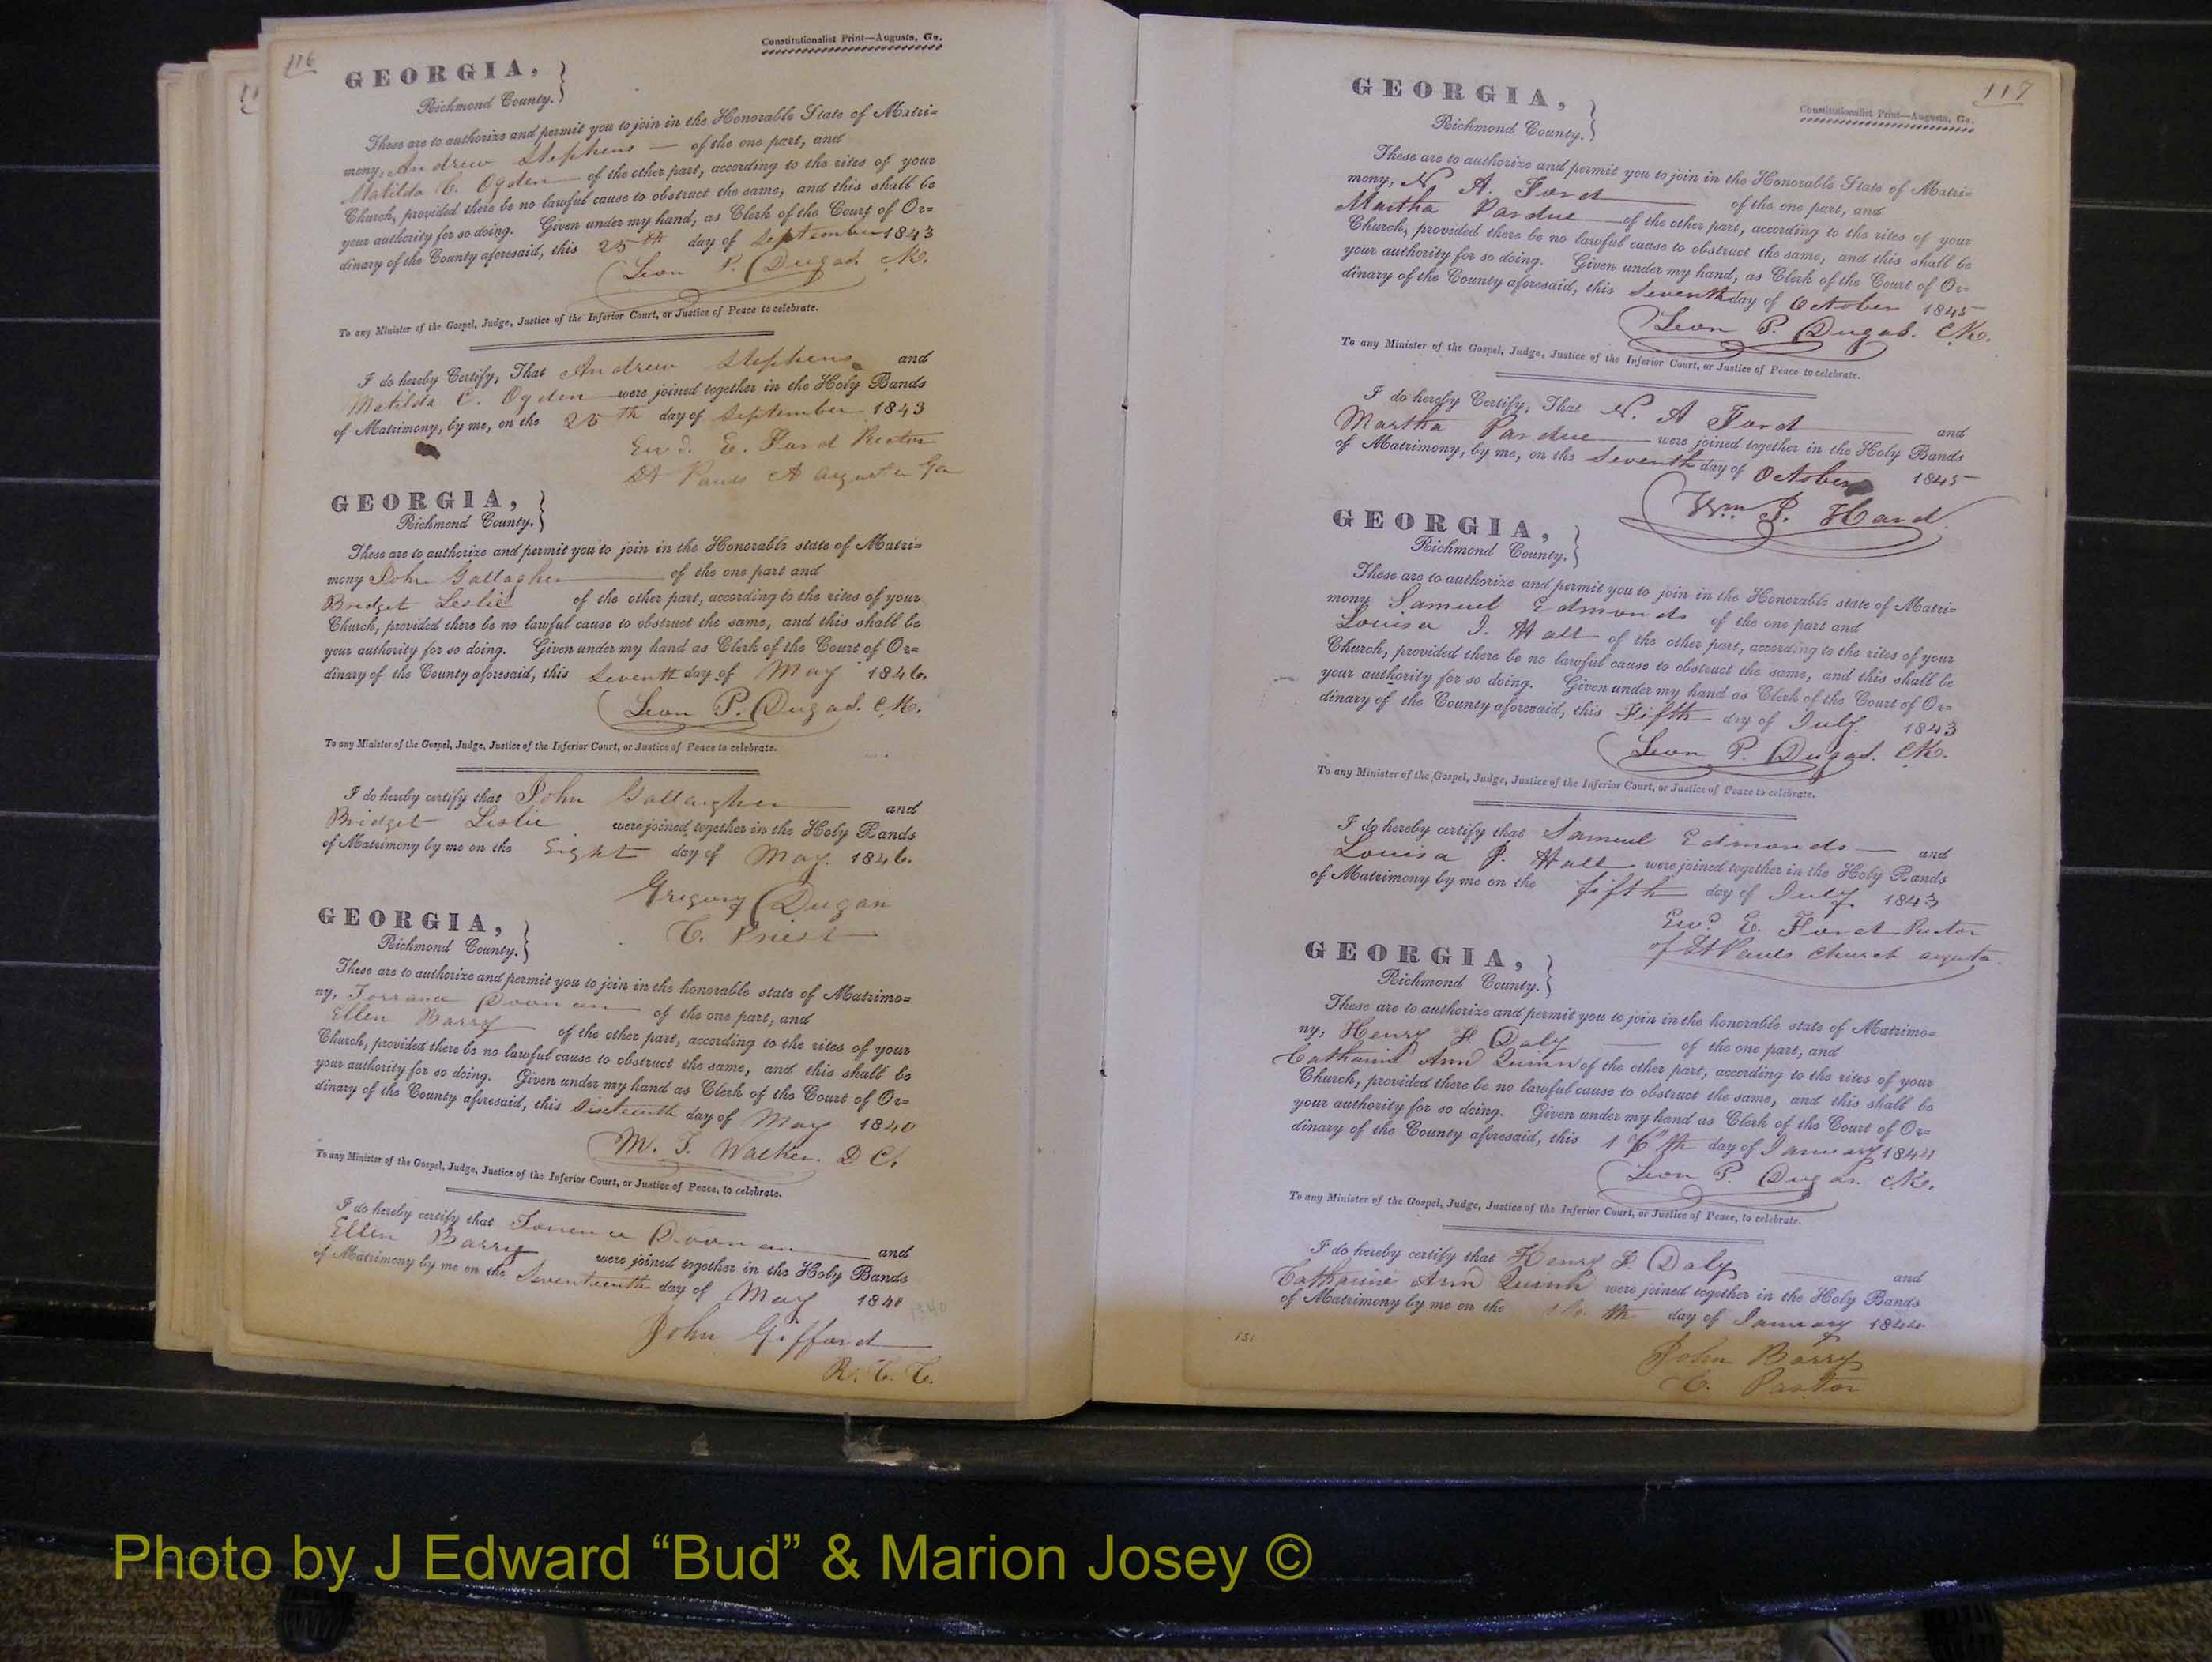 116
Constitutionalist Print—Augusta, Ga.
GEORGIA,
Richmond County.
These are to authorize and permit you to join in the Honorable State of Matri=
mony, Andrew Stephens — of the one part, and
Matilda C. Ogden of the other part, according to the rites of your
Church, provided there be no lawful cause to obstruct the same, and this shall be
your authority for so doing. Given under my hand, as Clerk of the Court of Or=
dinary of the County aforesaid, this 25th day of September 1843
Leon P. Dugas. Clk.
To any Minister of the Gospel, Judge, Justice of the Inferior Court, or Justice of Peace to celebrate.
I do hereby Certify, That Andrew Stephens and
Matilda C. Ogden were joined together in the Holy Bands
of Matrimony, by me, on the 25th day of September 1843
Ewd. E. Ford Rector
St Pauls Augusta Ga
GEORGIA,
Richmond County.
These are to authorize and permit you to join in the Honorable state of Matri=
mony John Gallagher of the one part and
Bridget Leslie of the other part, according to the rites of your
Church, provided there be no lawful cause to obstruct the same, and this shall be
your authority for so doing. Given under my hand as Clerk of the Court of Or=
dinary of the County aforesaid, this Seventh day of May 1846.
Leon P. Dugas. Clk.
To any Minister of the Gospel, Judge, Justice of the Inferior Court, or Justice of Peace to celebrate.
I do hereby certify that John Gallaugher and
Bridget Leslie were joined together in the Holy Bands
of Matrimony by me on the Eight day of May. 1846.
Gregory Dugan
C. Priest
GEORGIA,
Richmond County.
These are to authorize and permit you to join in the honorable state of Matrimo=
ny, Torrance Doonan of the one part, and
Ellen Barry of the other part, according to the rites of your
Church, provided there be no lawful cause to obstruct the same, and this shall be
your authority for so doing. Given under my hand as Clerk of the Court of Or=
dinary of the County aforesaid, this Sixteenth day of May 1840
M. T. Walker. D C.
To any Minister of the Gospel, Judge, Justice of the Inferior Court, or Justice of Peace, to celebrate.
I do hereby certify that Torrence Doonan and
Ellen Barry were joined together in the Holy Bands
of Matrimony by me on the Seventeenth day of May 1840 1840
John Gifford
R. C. C.
117
Constitutionalist Print—Augusta, Ga.
GEORGIA,
Richmond County.
These are to authorize and permit you to join in the Honorable State of Matri=
mony, N A. Ford of the one part, and
Martha Pardue of the other part, according to the rites of your
Church, provided there be no lawful cause to obstruct the same, and this shall be
your authority for so doing. Given under my hand, as Clerk of the Court of Or=
dinary of the County aforesaid, this Seventh day of October 1845
Leon P. Dugas. Clk.
To any Minister of the Gospel, Judge, Justice of the Inferior Court, or Justice of Peace to celebrate.
I do hereby Certify, That N. A Ford and
Martha Pardue were joined together in the Holy Bands
of Matrimony, by me, on the Seventh day of October 1845
Wm J. Hard
GEORGIA,
Richmond County.
These are to authorize and permit you to join in the Honorable state of Matri=
mony Samuel Edmonds of the one part and
Louisa J. Hall of the other part, according to the rites of your
Church, provided there be no lawful cause to obstruct the same, and this shall be
your authority for so doing. Given under my hand as Clerk of the Court of Or=
dinary of the County aforesaid, this Fifth day of July. 1843
Leon P. Dugas. Clk.
To any Minister of the Gospel, Judge, Justice of the Inferior Court, or Justice of Peace to celebrate.
I do hereby certify that Samuel Edmonds and
Louisa J. Hall were joined together in the Holy Bands
of Matrimony by me on the fifth day of July 1843
Ewd. E. Ford Rector
of St Pauls Church augusta.
GEORGIA,
Richmond County.
These are to authorize and permit you to join in the honorable state of Matrimo=
ny, Henry F. Daly of the one part, and
Catharine Ann Quinn of the other part, according to the rites of your
Church, provided there be no lawful cause to obstruct the same, and this shall be
your authority for so doing. Given under my hand as Clerk of the Court of Or=
dinary of the County aforesaid, this 16th day of January 1844
Leon P. Dugas. Clk.
To any Minister of the Gospel, Judge, Justice of the Inferior Court, or Justice of Peace, to celebrate.
I do hereby certify that Henry F Daly and
Catharine Ann Quinn were joined together in the Holy Bands
of Matrimony by me on the th day of January 1844
John Barry
C. Pastor
151
Photo by J Edward “Bud” & Marion Josey ©